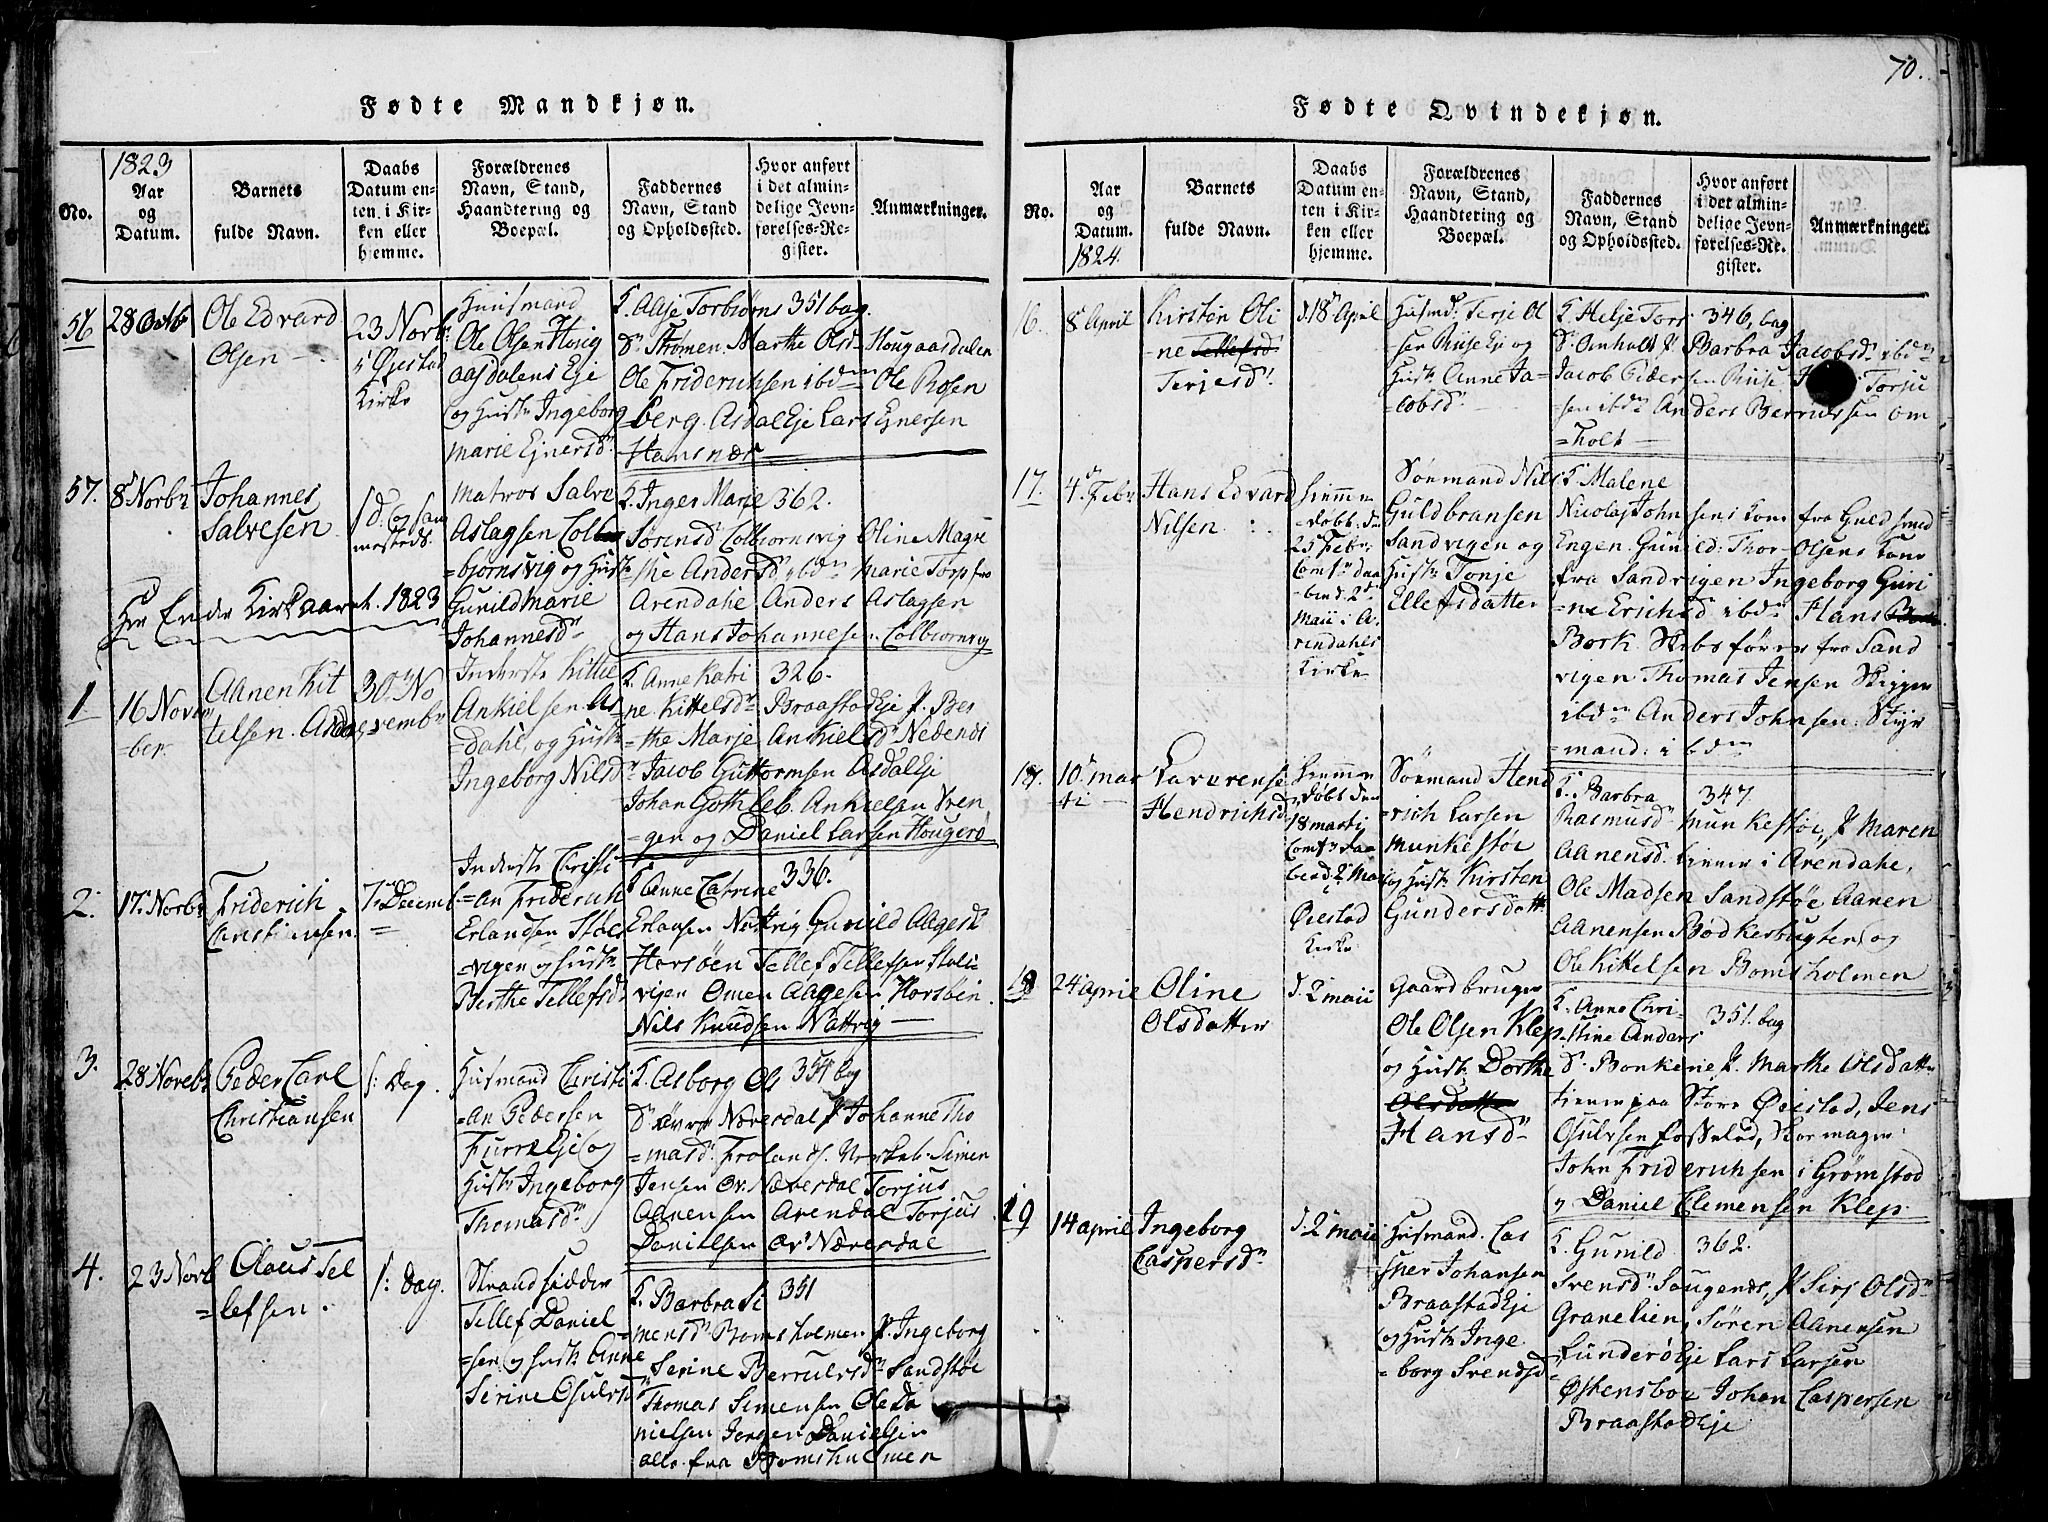 70.
Fødte Mandkjøn.
No.
1823
Aar
og
Datum.
Barnets
fulde Navn.
Daabs
Datum en-
ten i Kir-
ken eller
hjemme.
Forældrenes
Navn, Stand,
Haandtering og
Boepæl.
Faddernes
Navn, Stand
og Opholdssted.
Hvor anført
i det almin-
delige Jevn-
førelses-Re-
gister.
Anmærkninger.
56
28 Octb
Ole Edvard
Olsen
23 Novbr
i Øiestad
Kirke
Huusmand
Ole Olsen Houg
aasdalens Eje
og Hustr Ingeborg
Marie Ejnersd
F. Aasje Torbiørns 351 bag.
D Strømen. Marthe Olsd Hougaasdalen
Ole Friderichsen ibdm Ole Rosen
=berg. Asdal Eje Lars Ejnersen
Hansnær
57.
8 Novbr
Johannes
Salvesen
S D: og sam
mesteds.
Matros Salve
Aslagsen Colb
=bjørnsvig og Hustr
Gunild Marie
Johannesd
F. Inger Marie 362.
Sørensd Colbiornsvig Oline Magre
=the Andersd ibdm Marie Torp fra
Arendahl Anders Aslagsen
og Hans Johannesen Colbiornsvig
Her Ender Kirkaaret. 1823
1
16 Novem
=ber.
Aanen Kit
telsen. Asdal
30 No
=vembr
Inderste Kittel
Ankielsen As
=dahl, og Hustr
Ingeborg Nilsd
F. Anne Katri 326.
ne Kittelsd Braastad Eje P. Ber
=the Marje Ankielsd Nedenes
Jacob Guttormsen Asdal Eje
Johan Gothleb. Ankielsen Vren
=gen og Daniel Larsen Hougerø
2.
17 Novbr
Friderich
Christiansen.
7 Decemb
Inderste Christi
=an Friderich
Erlandsen Støls
=vigen og Hustr
Berthe Tellefsd
F. Anne Catrine 336.
Erlansen Nattvig Gunild Aagesd
Horsøen Tellef Tellefsen Støls
vigen Omen Aagesen Horsøen.
Nils Knudsen Nattvig
3.
28 Novebr
Peder Carl
Christiansen
S: Dag.
Husmand Christi
=an Pedersen
Furre Eje og
Hustr Ingeborg
Thomasd
F. Asborg Ols 354 bag
D øvre Næverdal P Johanne Tho
=masd. Froland. Simen
Jensen Ov. Næverdal Torjus
Aanensen Arendal Torjus
Danielsen Ov Næverdal
4.
23 Novb
Claus Tel
=lefsen.
S: Dag.
Strandsidder
Tellef Daniel
=sen og Hustr Anne
Serine Osulvsd
F. Barbra Si 351
mensd Bomsholmen P. Ingeborg
Serine Berrulvsd Sandstøe
Thomas Simensen Ole Da
nielsen Jørgen Danielsen
alle fra Bomsholmen
Fødte Qvindekjøn.
No.
Aar
og
Datum.
1824
Barnets
fulde Navn.
Daabs
Datum en-
ten i Kir-
ken eller
hjemme.
Forældrenes
Navn, Stand,
Haandtering og
Boepæl.
Faddernes
Navn, Stand
og Opholdssted.
Hvor anført
i det almin-
delige Jevn-
førelses-Re-
gister.
Anmærkninger.
16.
8 April
Kirsten Oli
=ne Tellefsd
Terjesd
d. 18 April
Husmd. Terje Ol
=sen Riise Eje og
Hustr Anne Ja=
=cobsd
F. Helje Tors 346, bag
D. Omholt P. Barbra Jacobsd ibdm
Jacob Pedersen Riise Torju
sen ibdm Anders Berrulvsen om
=holt
17.
4 Febr
Hans Edvard
Nilsen
hiemme
=døbt. den
25 Febr.
Comf daa
bend. 2
Maii i A
rendahls
Kirke
Sømand Nils
Guldbransen
Sandvigen og
Hustr Tonje
Ellefsdatter
F. Malene
Nicolaj Johnsens Kone fra Guldsmed
Engen. Gunild: Thor Olsens Kone
fra Sandvigen Ingeborg Guri
=ne Erichsd ibdm Hans
Bork. Skibsfører fra Sand
vigen Thomas Jensen Skipper
ibdm Anders Johnsen. Styr
=mand: ibdm
18.
10 mar
ti
Laverense
Hendrichsd
hiemme
=døbt den
18 martij
Comf Daa
bend. 2 Maii
i
Øiestad
Kirke
Sømand Hend
=rich Larsen
Munkestøe
og Hustr Kirsten
Gundersdatt
F. Barbra 347
Rasmusd Munkestøe, P Maren
Aanensd. tiener i Arendahl,
Ole Madsen Sandstøe Aanen
Aanensen Bødkerbugten og
Ole Kittelsen Bomsholmen
19
24 april
Oline
Olsdatter
d. 2 maii
Gaardbruger
Ole Olsen Klep
og Hustr Dorthe
Olsdatter
Hansd
F. Anne Chri 351. bag
stine Anders
D. Bonkene P. Marthe Olsdatter
tiener paa Store Øiestad, Jens
Osulvsen Fosselud, Skomager
John Friderichsen i Grømstad
og Daniel Clemensen Klep.
19
14 april
Ingeborg
Caspersd
d. 2 maii
Husmand. Cas
sper Johansen
Braastad Eje
og Hustr Inge
=borg Svendsd
F. Gunild 362.
Svensd Saugenes, P Siri Olsd
Granelien, Søren Aanensen
Lunderød Eje Lars Larsen
Østensboe Johan Caspersen
Braastad Eje